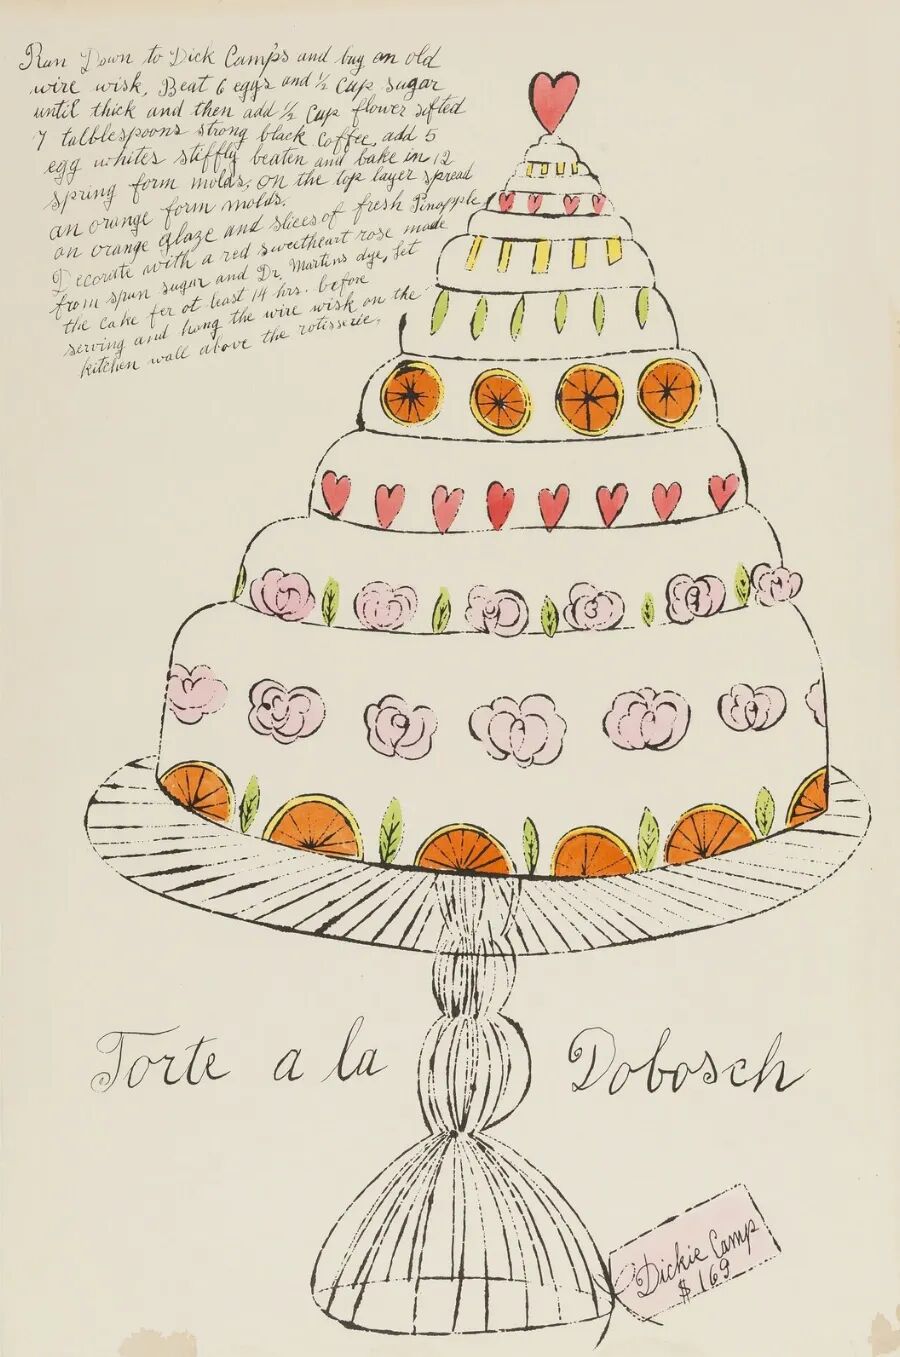 Run Down to Dick Camps and buy an old
wire wisk, Beat 6 eggs and ½ cup sugar
until thick and then add ½ cup flower sifted
7 talblespoons strong black coffee, add 5
egg whites stiffly beaten and bake in 12
spring form molds, on the top layer spread
an orange form molds.
an orange glaze and slices of fresh Pinapple
Decorate with a red sweetheart rose made
from spun sugar and Dr. Martins dye, Let
the cake fer at least 14 hrs. before
serving and hang the wire wisk on the
kitchen wall above the rotisserie.
Torte a la Dobosch
Dickie Camp
$169